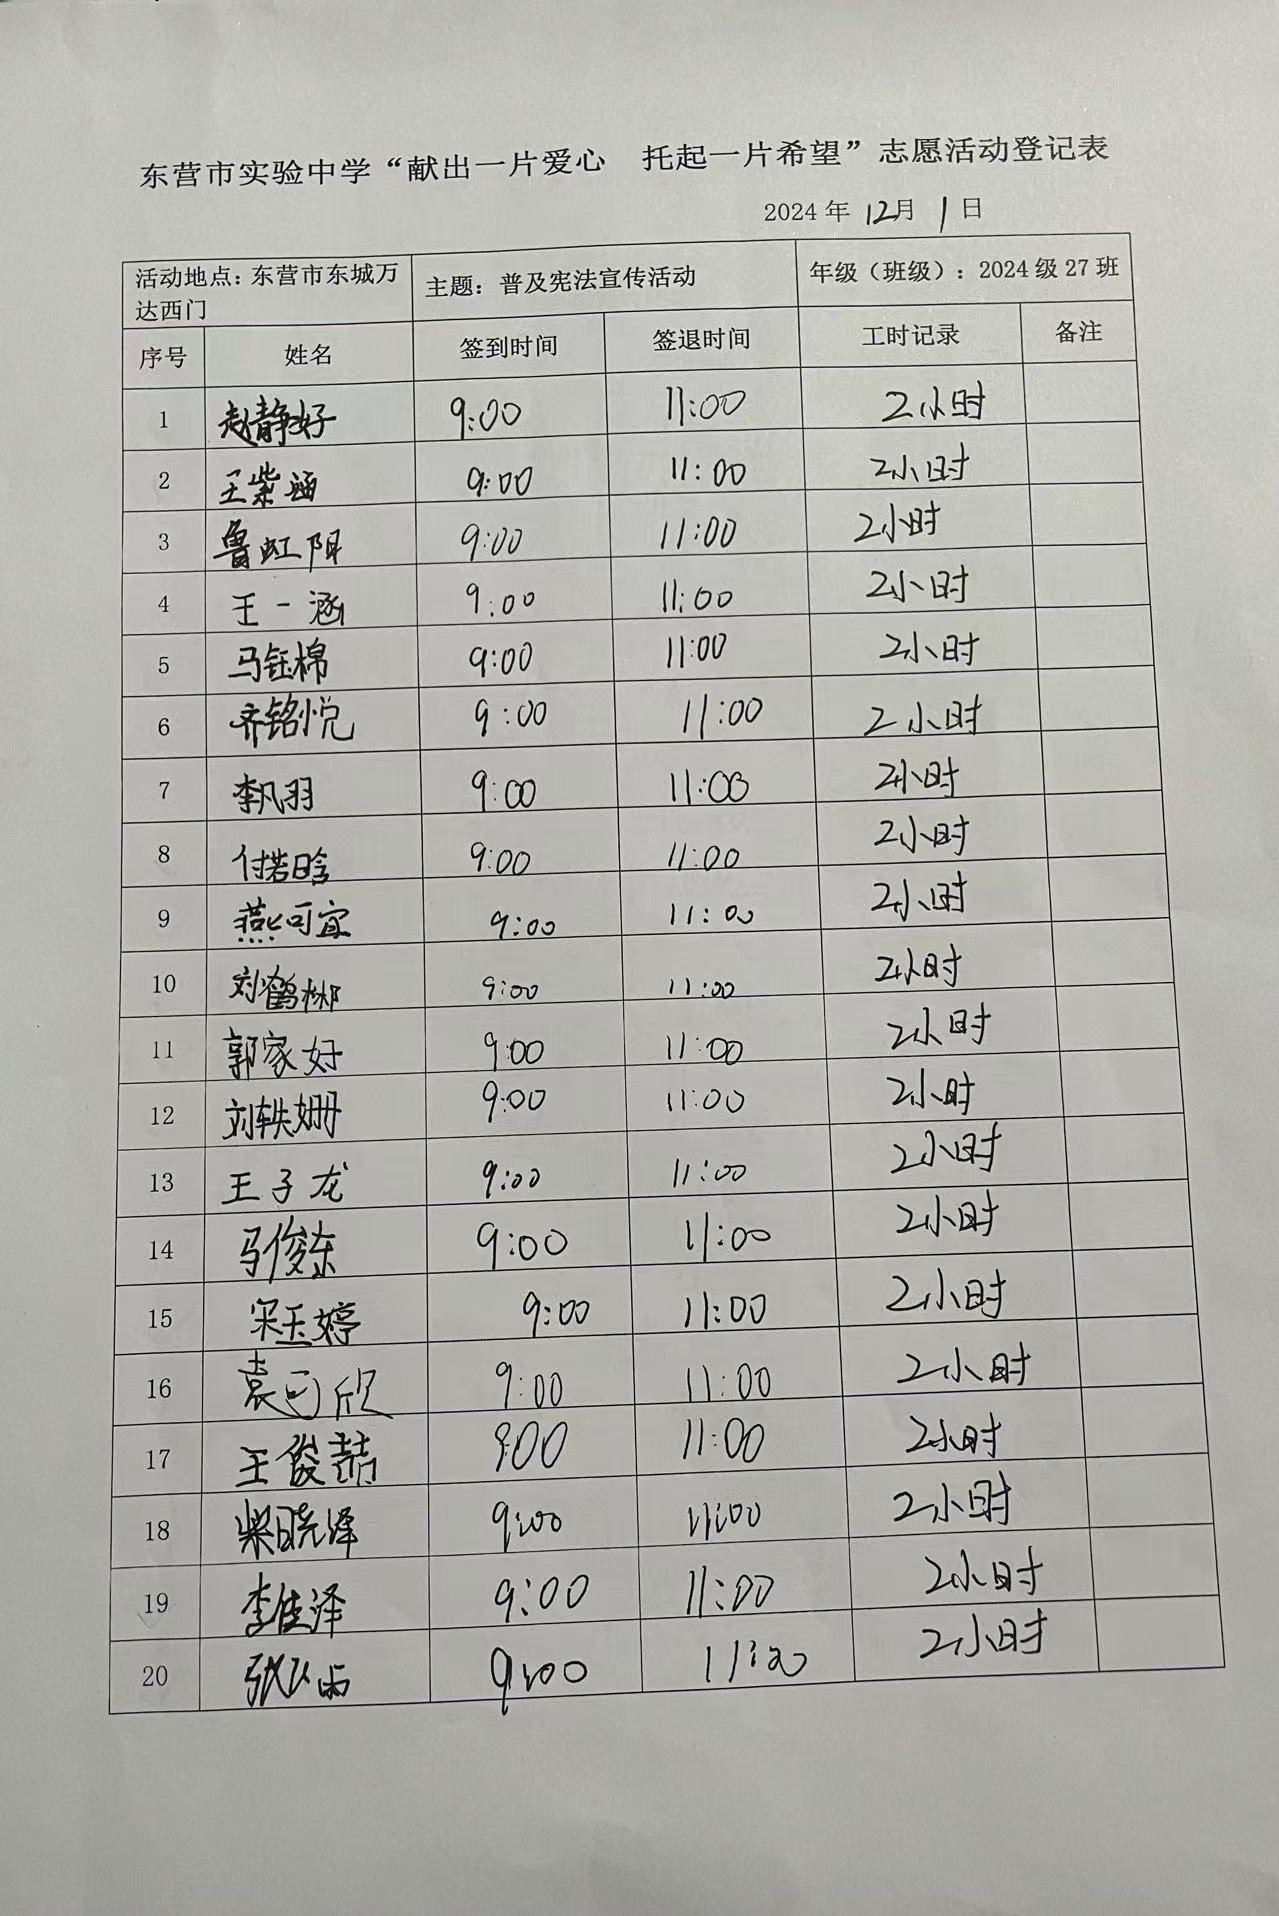 东营市实验中学“献出一片爱心　托起一片希望”志愿活动登记表
2024 年 12月 1 日
活动地点：东营市东城万达西门 主题：普及宪法宣传活动 年级（班级）：2024 级 27 班
序号 姓名 签到时间 签退时间 工时记录 备注
1 赵静好 9:00 11:00 2小时
2 王紫涵 9:00 11:00 2小时
3 鲁虹阳 9:00 11:00 2小时
4 王一涵 9:00 11:00 2小时
5 马钰棉 9:00 11:00 2小时
6 齐铭悦 9:00 11:00 2小时
7 李凡羽 9:00 11:00 2小时
8 付若晗 9:00 11:00 2小时
9 燕可宜 9:00 11:00 2小时
10 刘鹤彬 9:00 11:00 2小时
11 郭家好 9:00 11:00 2小时
12 刘轶姗 9:00 11:00 2小时
13 王子龙 9:00 11:00 2小时
14 马俊东 9:00 11:00 2小时
15 宋玉婷 9:00 11:00 2小时
16 袁可欣 9:00 11:00 2小时
17 王俊喆 9:00 11:00 2小时
18 柴晓泽 9:00 11:00 2小时
19 李佳泽 9:00 11:00 2小时
20 9:00 11:00 2小时